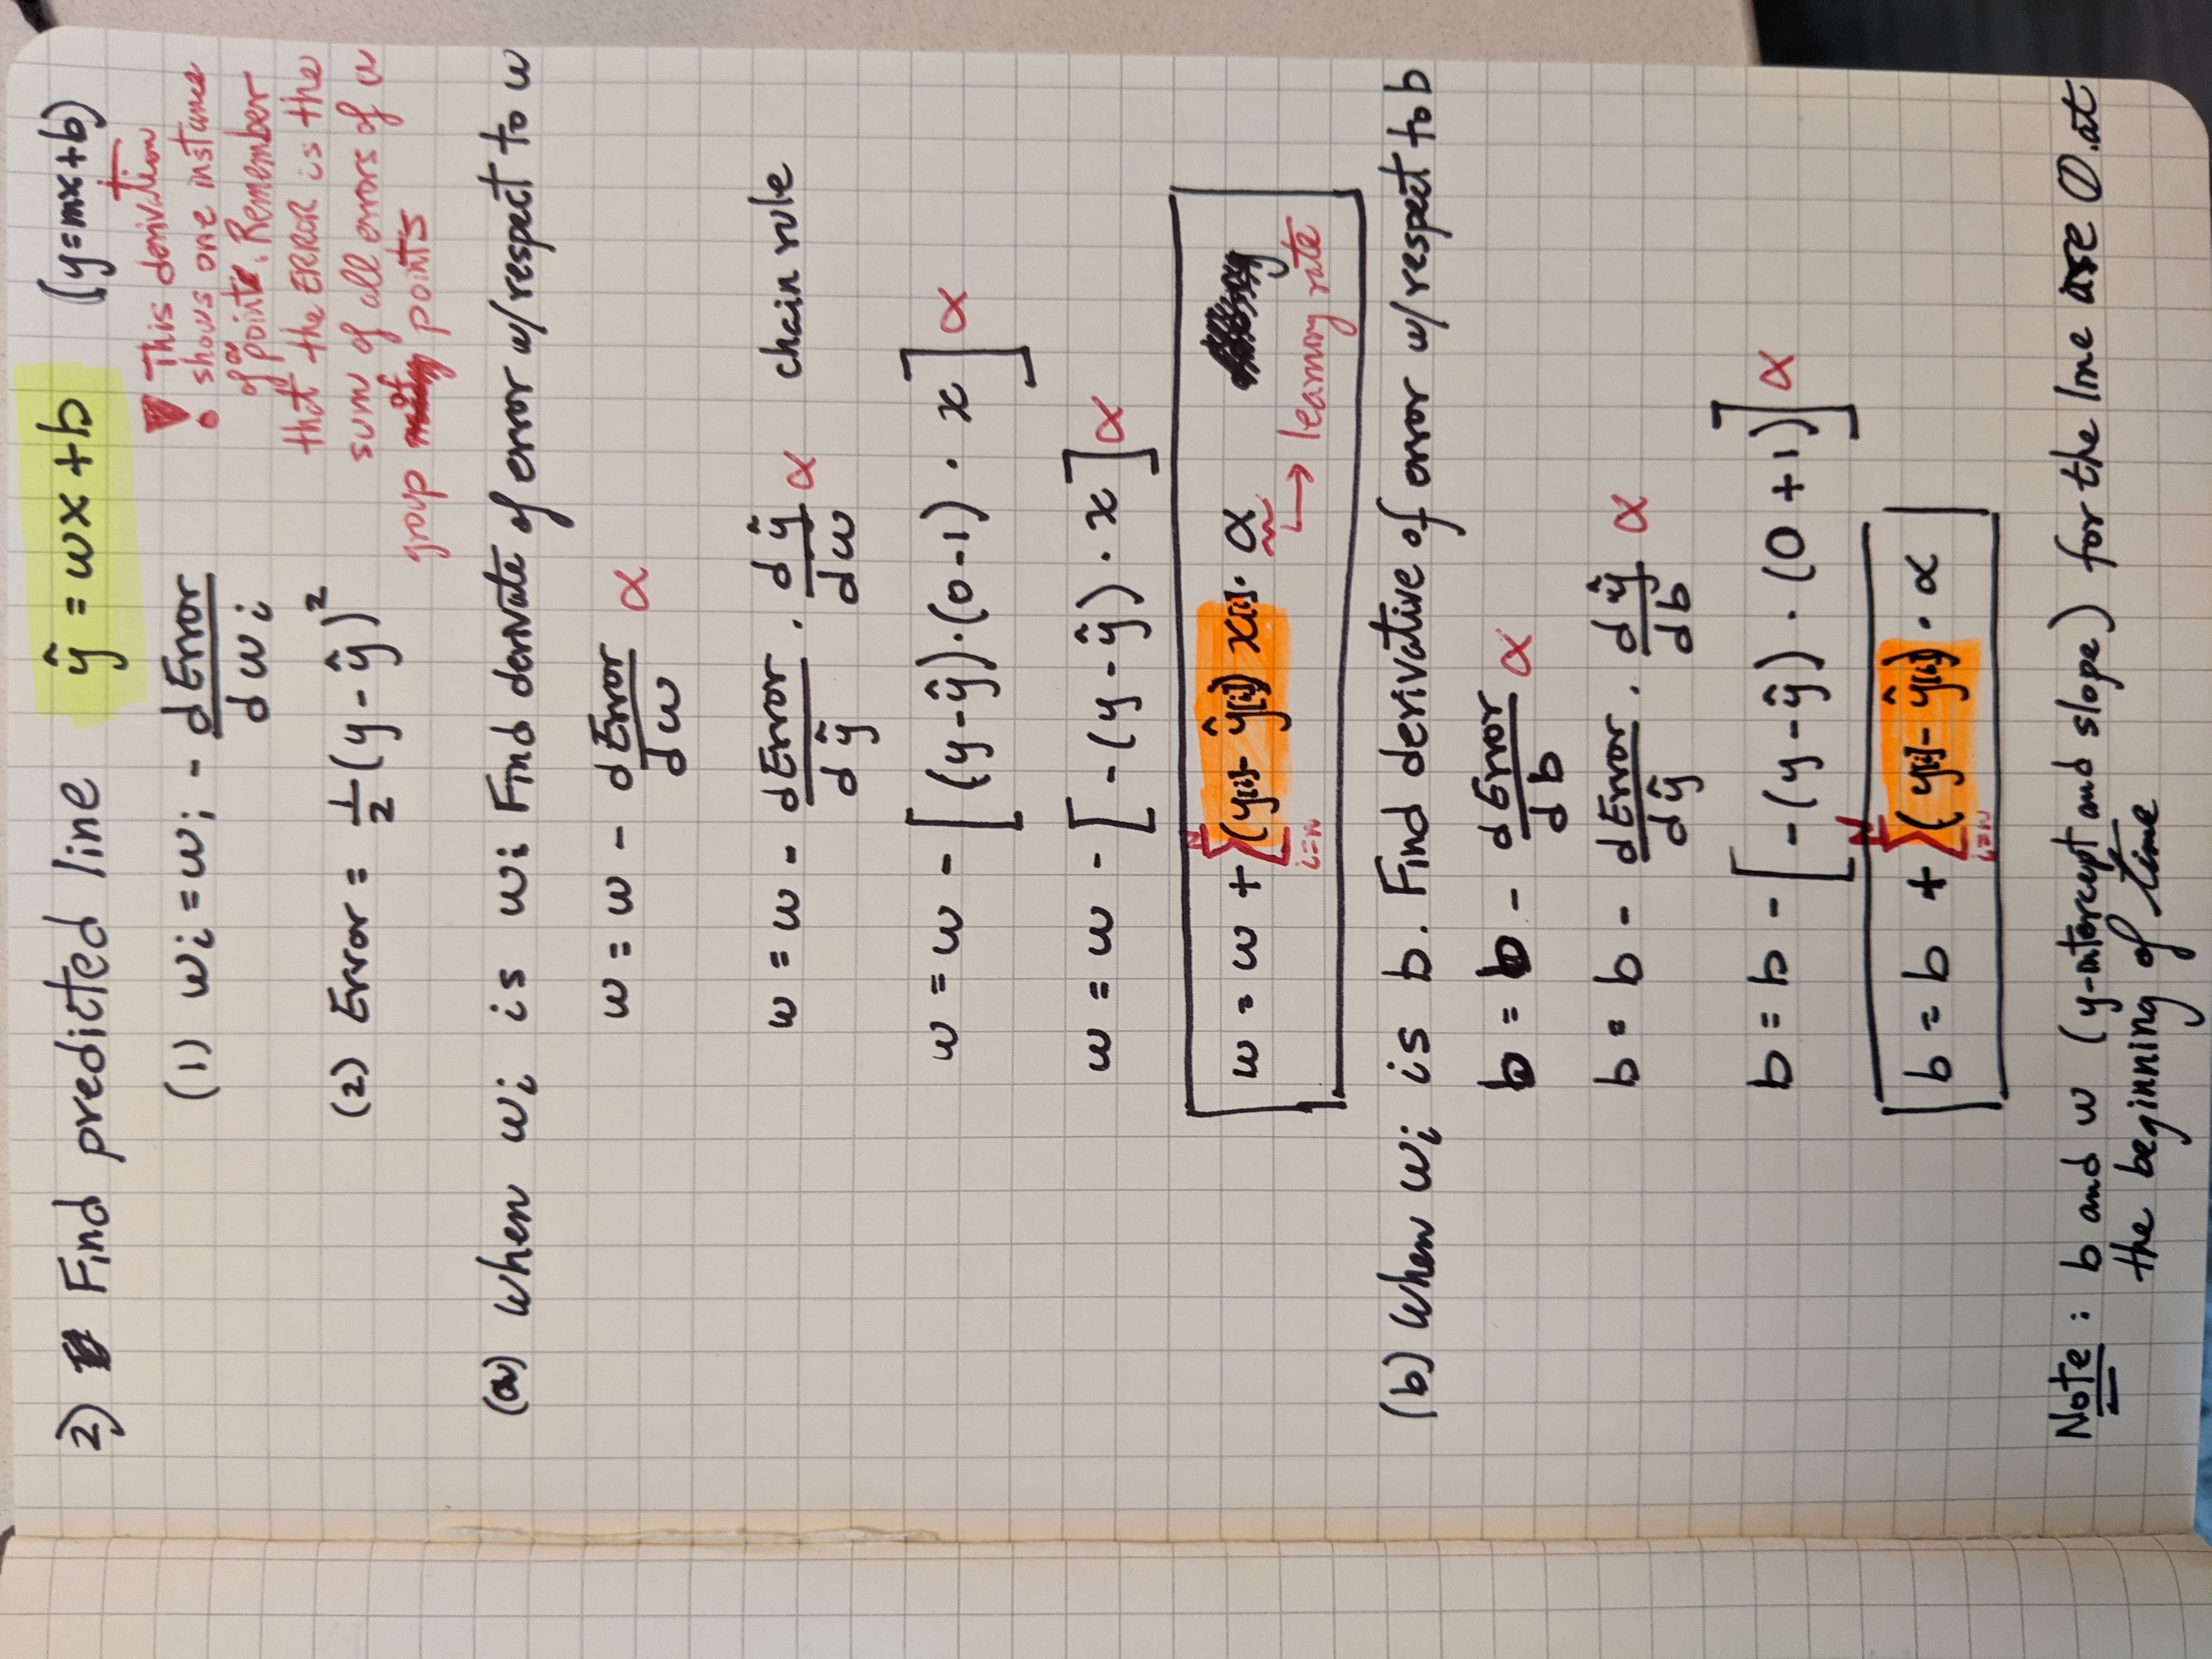 2) Find predicted line ŷ = wx + b (y=mx+b)
(1) wi = wi - dError / dwi
! This derivation
shows one instance
of a point. Remember
that the ERROR is the
sum of all errors of a
group of points
(2) Error = 1/2 (y - ŷ)²
(a) When wi is wi Find derivate of error w/respect to w
w = w - dError / dw α
w = w - dError / dŷ · dŷ / dw α chain rule
w = w - [(y-ŷ)·(0-1) · x] α
w = w - [-(y-ŷ) · x] α
w = w + N ∑ i=n (y[i] - ŷ[i]) x[i] · α
→ learning rate
(b) When wi is b. Find derivative of error w/respect to b
b = b - dError / db α
b = b - dError / dŷ · dŷ / db α
b = b - [-(y-ŷ) · (0+1)] α
b = b + N ∑ i=n (y[i] - ŷ[i]) · α
Note: b and w (y-intercept and slope) for the line are 0 at
the beginning of time